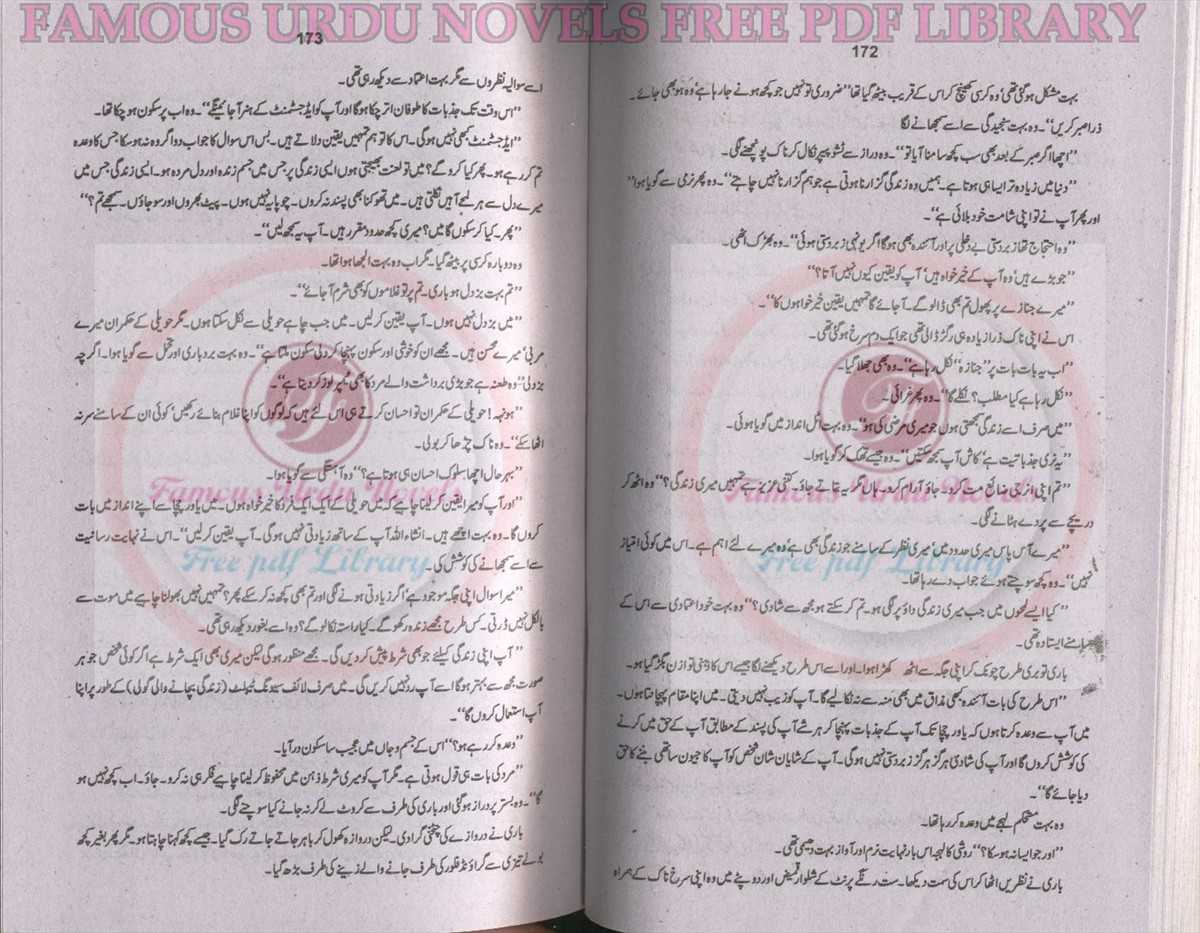 FAMOUS URDU NOVELS FREE PDF LIBRARY
172
بہت مشکل ہو گئی تھی‘ وہ کرسی کھینچ کر اس کے قریب بیٹھ گیا تھا ”ضروری تو نہیں جو کچھ ہونے جا رہا ہے‘ وہ ہو بھی جائے۔
ذرا صبر کریں“۔ وہ بہت سنجیدگی سے اسے سمجھانے لگا
”اچھا اگر صبر کے بعد بھی سب کچھ سامنا آیا تو“۔ وہ دراز سے ٹشو پیپر نکال کر ناک پونچھنے لگی۔
”دنیا میں زیادہ تر ایسا ہی ہوتا ہے۔ ہمیں وہ زندگی گزارنا ہوتی ہے جو ہم گزارنا نہیں چاہتے“۔ وہ پھر نرمی سے گویا ہوا”
اور پھر آپ نے تو اپنی شامت خود بلائی ہے“۔
”وہ احتجاج تھا زبردستی بے دخلی پر اور آئندہ بھی ہوگا اگر یونہی زبردستی ہوئی“۔ وہ بھڑک اٹھی۔
”جو بڑے ہیں‘ وہ آپ کے خیر خواہ ہیں‘ آپ کو یقین کیوں نہیں آتا؟“
”میرے جنازے پر پھول تم بھی ڈالو گے۔ آ جائے گا تمہیں یقین خیر خواہوں کا“۔
اس نے اپنی ناک ذرا زیادہ ہی رگڑ ڈالی تھی جو ایک دم سرخ ہو گئی تھی۔
”اب یہ بات بات پر ”جنازہ“ نکل رہا ہے“۔ وہ بھی جھلا گیا۔
”نکل رہا ہے کیا مطلب؟ نکلے گا“۔ وہ پھر غرائی۔
”میں صرف اسے زندگی سمجھتی ہوں جو میری مرضی کی ہو“۔ وہ بہت اٹل انداز میں گویا ہوئی۔
”یہ نری جذباتیت ہے‘ کاش آپ سمجھ سکتیں“۔ وہ جیسے تھک کر گویا ہوا۔
”تم اپنی انرجی ضائع مت کرو۔ جاؤ آرام کرو۔ ہاں مگر یہ بتاتے جاؤ۔ کتنی عزیز ہے تمہیں میری زندگی؟“ وہ اٹھ کر
دریچے سے پردے ہٹانے لگی۔
”میرے آس پاس میری حدود میں‘ میری نظر کے سامنے جو زندگی بھی ہے‘ وہ میرے لئے اہم ہے۔ اس میں کوئی امتیاز
نہیں“۔ وہ کچھ سوچتے ہوئے جواب دے رہا تھا۔
”کیا ایسے لمحوں میں جب میری زندگی داؤ پر لگی ہو۔ تم کر سکتے ہو مجھ سے شادی؟“ وہ بہت خود اعتمادی سے اس کے
سامنے ایستادہ تھی۔
باری تو بری طرح چونک کر اپنی جگہ سے اٹھ کھڑا ہوا۔ اور اسے اس طرح دیکھنے لگا جیسے اس کا ذہنی توازن بگڑ گیا ہو۔
”اس طرح کی بات آئندہ کبھی مذاق میں بھی منہ سے نہ نکالیے گا۔ آپ کو زیب نہیں دیتی۔ میں اپنا مقام پہچانتا ہوں۔
میں آپ سے وعدہ کرتا ہوں کہ یاور چچا تک آپ کے جذبات پہنچا کر ہر شے آپ کی پسند کے مطابق آپ کے حق میں کرنے
کی کوشش کروں گا اور آپ کی شادی ہرگز ہرگز زبردستی نہیں ہوگی۔ آپ کے شایان شان شخص کو آپ کا جیون ساتھی بننے کا حق
دیا جائے گا“۔
وہ بہت مستحکم لہجے میں وعدہ کر رہا تھا۔
”اور جو ایسا نہ ہو سکا؟“ روشی کا لہجہ اس بار نہایت نرم اور آواز بہت دھیمی تھی۔
باری نے نظریں اٹھا کر اس کی سمت دیکھا۔ ست رنگے پرنٹ کے شلوار قمیض اور دوپٹے میں وہ اپنی سرخ ناک کے ہمراہ
173
اسے سوالیہ نظروں سے مگر بہت اعتماد سے دیکھ رہی تھی۔
”اس وقت تک جذبات کا طوفان اتر چکا ہوگا اور آپ کو ایڈجسٹمنٹ کے ہنر آ جائینگے“۔ وہ اب پر سکون ہو چکا تھا۔
”ایڈجسٹمنٹ کبھی نہیں ہوگی۔ اس کا تو ہم تمہیں یقین دلاتے ہیں۔ بس اس سوال کا جواب دو اگر وہ نہ ہو سکا جس کا وعدہ
تم کر رہے ہو۔ پھر کیا کرو گے؟ میں تو لعنت بھیجتی ہوں ایسی زندگی پر جس میں جسم زندہ اور دل مردہ ہو۔ ایسی زندگی جس میں
میرے دل سے ہر لمحے آہیں نکلتی ہیں۔ میں تھوکنا بھی پسند نہ کروں۔ چوپایہ نہیں ہوں۔ پیٹ بھروں اور سو جاؤں۔ سمجھے تم؟“
”پھر کیا کر سکوں گا میں؟ میری کچھ حدود مقرر ہیں۔ آپ یہ سمجھ لیں“۔
وہ دوبارہ کرسی پر بیٹھ گیا۔ مگر اب وہ بہت الجھا ہوا تھا۔
”تم بہت بزدل ہو باری۔ تم پر تو غلاموں کو بھی شرم آ جائے“۔
”میں بزدل نہیں ہوں۔ آپ یقین کرلیں۔ میں جب چاہے حویلی سے نکل سکتا ہوں۔ مگر حویلی کے حکمران میرے
مربی‘ میرے محسن ہیں۔ مجھے ان کو خوشی اور سکون پہنچا کر دلی سکون ملتا ہے“۔ وہ بہت بردباری اور تحمل سے گویا ہوا۔ اگرچہ
بزدلی‘ وہ طعنہ ہے جو بڑی برداشت والے مرد کا بھی ٹمپر لوز کر دیتا ہے“۔
”ہونہہ! حویلی کے حکمران تو احسان کرتے ہی اس لئے ہیں کہ لوگوں کو اپنا غلام بنائے رکھیں‘ کوئی ان کے سامنے سر نہ
اٹھا سکے“۔ وہ ناک چڑھا کر بولی۔
”بہر حال اچھا سلوک احسان ہی ہوتا ہے؟“ وہ آہستگی سے گویا ہوا۔
”اور آپ کو میرا یقین کر لینا چاہیے کہ میں حویلی کے ایک ایک فرد کا خیر خواہ ہوں۔ میں یاور چچا سے اپنے انداز میں بات
کروں گا۔ وہ بہت اچھے ہیں۔ انشاء اللہ آپ کے ساتھ زیادتی نہیں ہوگی۔ آپ یقین کرلیں“۔ اس نے نہایت رسانیت
سے اسے سمجھانے کی کوشش کی۔
”میرا سوال اپنی جگہ موجود ہے‘ اگر زیادتی ہونے لگی اور تم بھی کچھ نہ کر سکے پھر؟ تمہیں نہیں بھولنا چاہیے میں موت سے
بالکل نہیں ڈرتی۔ کس طرح مجھے زندہ رکھو گے۔ کیا راستہ نکالو گے؟ وہ اسے بغور دیکھ رہی تھی۔
”آپ اپنی زندگی کیلئے جو بھی شرط پیش کردیں گی۔ مجھے منظور ہوگی لیکن میری بھی ایک شرط ہے اگر کوئی شخص جو ہر
صورت مجھ سے بہتر ہوگا اسے آپ رد نہیں کریں گی۔ میں صرف لائف سیونگ ٹیبلٹ (زندگی بچانے والی گولی) کے طور پر اپنا
آپ استعمال کروں گا“۔
”وعدہ کر رہے ہو؟“ اس کے جسم و جاں میں عجیب سا سکون در آیا۔
”مرد کی بات ہی قول ہوتی ہے۔ مگر آپ کو میری شرط ذہن میں محفوظ کر لینا چاہیے فکر ہی نہ کرو۔ جاؤ۔ اب کچھ نہیں ہو
گا“۔ وہ بستر پر دراز ہو گئی اور باری کی طرف سے کروٹ لے کر نہ جانے کیا سوچنے لگی۔
باری نے دروازے کی چٹخنی گرا دی۔ لیکن دروازہ کھول کر باہر جاتے جاتے رک گیا۔ جیسے کچھ کہنا چاہتا ہو۔ مگر پھر بغیر کچھ
بولے تیزی سے گراؤنڈ فلور کی طرف جانے والے زینے کی طرف بڑھ گیا۔
Famous Urdu Novels
Free pdf Library
Famous Urdu Novels
Free pdf Library